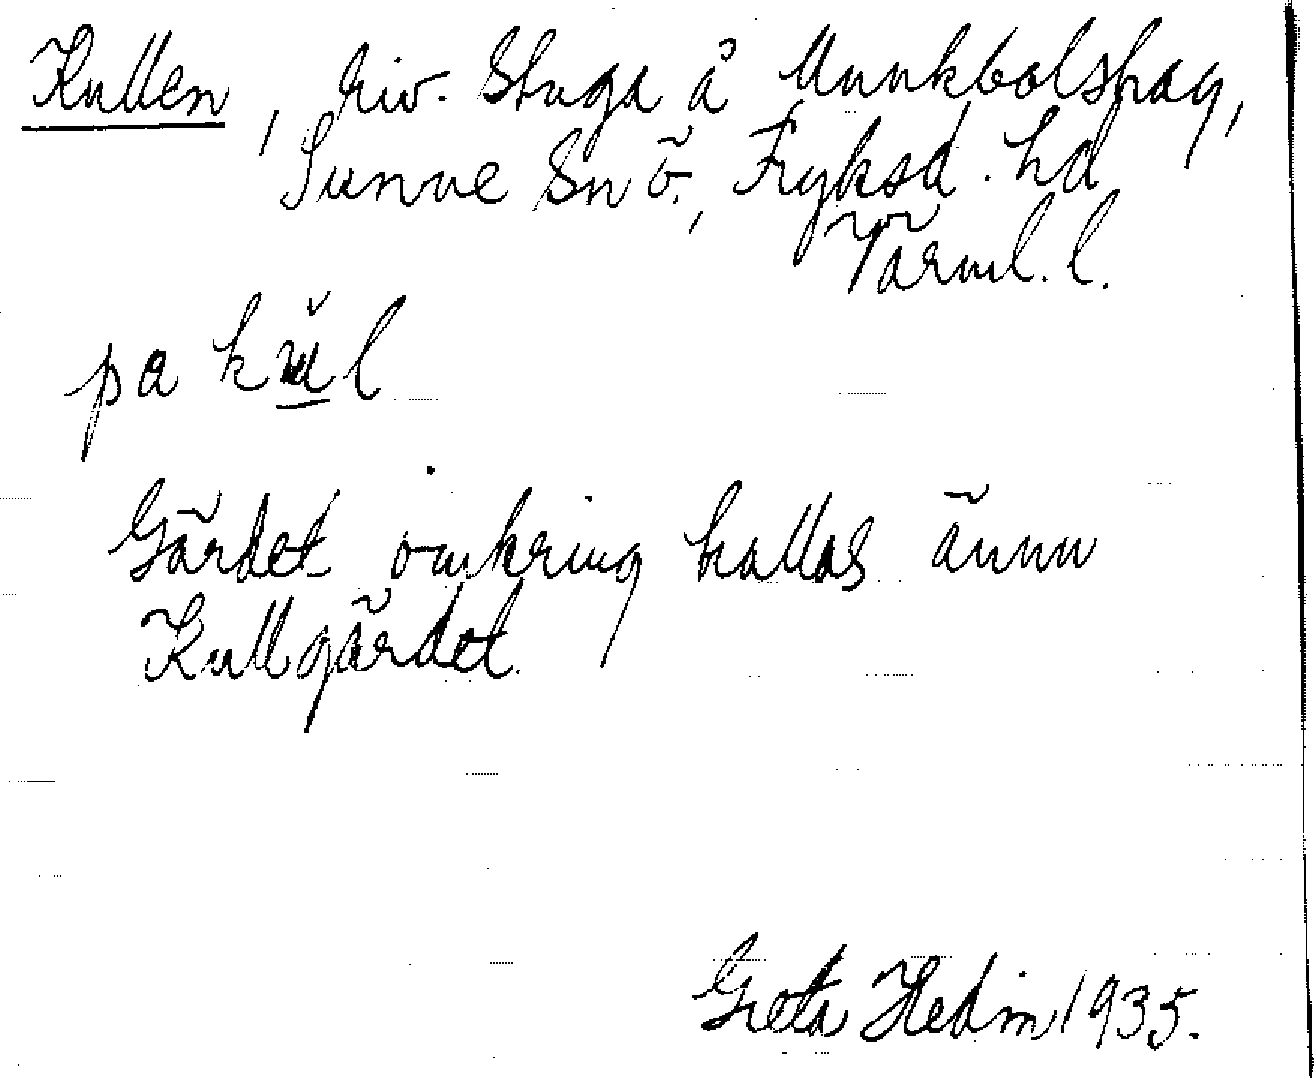 Kullen, riv. stuga å Munkbolshag,
Sunne sn ö., Fryksd. hd
Värml. l.
pa kŭl
Gärdet omkring kallas ännu
Kullgärdet.
Greta Hedin 1935.